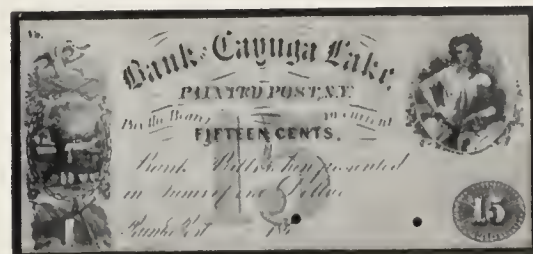 No.
Bank of Cayuga Lake,
PAINTED POST, N.Y.
Pay the Bearer in current
FIFTEEN CENTS.
Bank Bills when presented
in sums of one Dollar
Painted Post 186
15